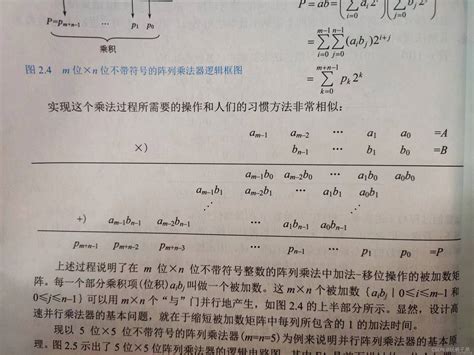 P=p_{m+n-1} … p_1 p_0
乘积
P=ab=(∑_{i=0} a_i 2^i)(∑_{j=0} b_j 2^j)
=∑_{i=0}^{m-1}∑_{j=0}^{n-1}(a_i b_j)2^{i+j}
=∑_{k=0}^{m+n-1} p_k 2^k
图 2.4 m 位×n 位不带符号的阵列乘法器逻辑框图
实现这个乘法过程所需要的操作和人们的习惯方法非常相似：
a_{m-1} a_{m-2} … a_1 a_0 =A
×) b_{n-1} … b_1 b_0 =B
a_{m-1}b_0 a_{m-2}b_0 … a_1b_0 a_0b_0
a_{m-1}b_1 a_{m-2}b_1 … a_1b_1 a_0b_1
⋰ ⋰
+) a_{m-1}b_{n-1} a_{m-2}b_{n-1} … a_1b_{n-1} a_0b_{n-1}
p_{m+n-1} p_{m+n-2} p_{m+n-3} … p_{n-1} … p_1 p_0 =P
上述过程说明了在 m 位×n 位不带符号整数的阵列乘法中加法-移位操作的被加数矩
阵。每一个部分乘积项(位积)a_ib_j 叫做一个被加数。这 m×n 个被加数{a_ib_j | 0≤i≤m-1 和
0≤j≤n-1}可以用 m×n 个“与”门并行地产生，如图 2.4 的上半部分所示。显然，设计高
速并行乘法器的基本问题，就在于缩短被加数矩阵中每列所包含的 1 的加法时间。
现以 5 位×5 位不带符号的阵列乘法器(m=n=5)为例来说明并行阵列乘法器的基本原
理。图 2.5 示出了 5 位×5 位阵列乘法器的逻辑电路图